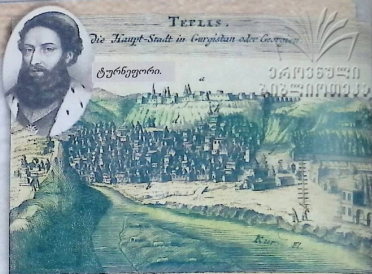 TEFLIS.
die Haupt-Stadt in Gurgistan oder Georgien
ტურნეფორი.
ეროვნული
ბიბლიოთეკა
a
Kur fl